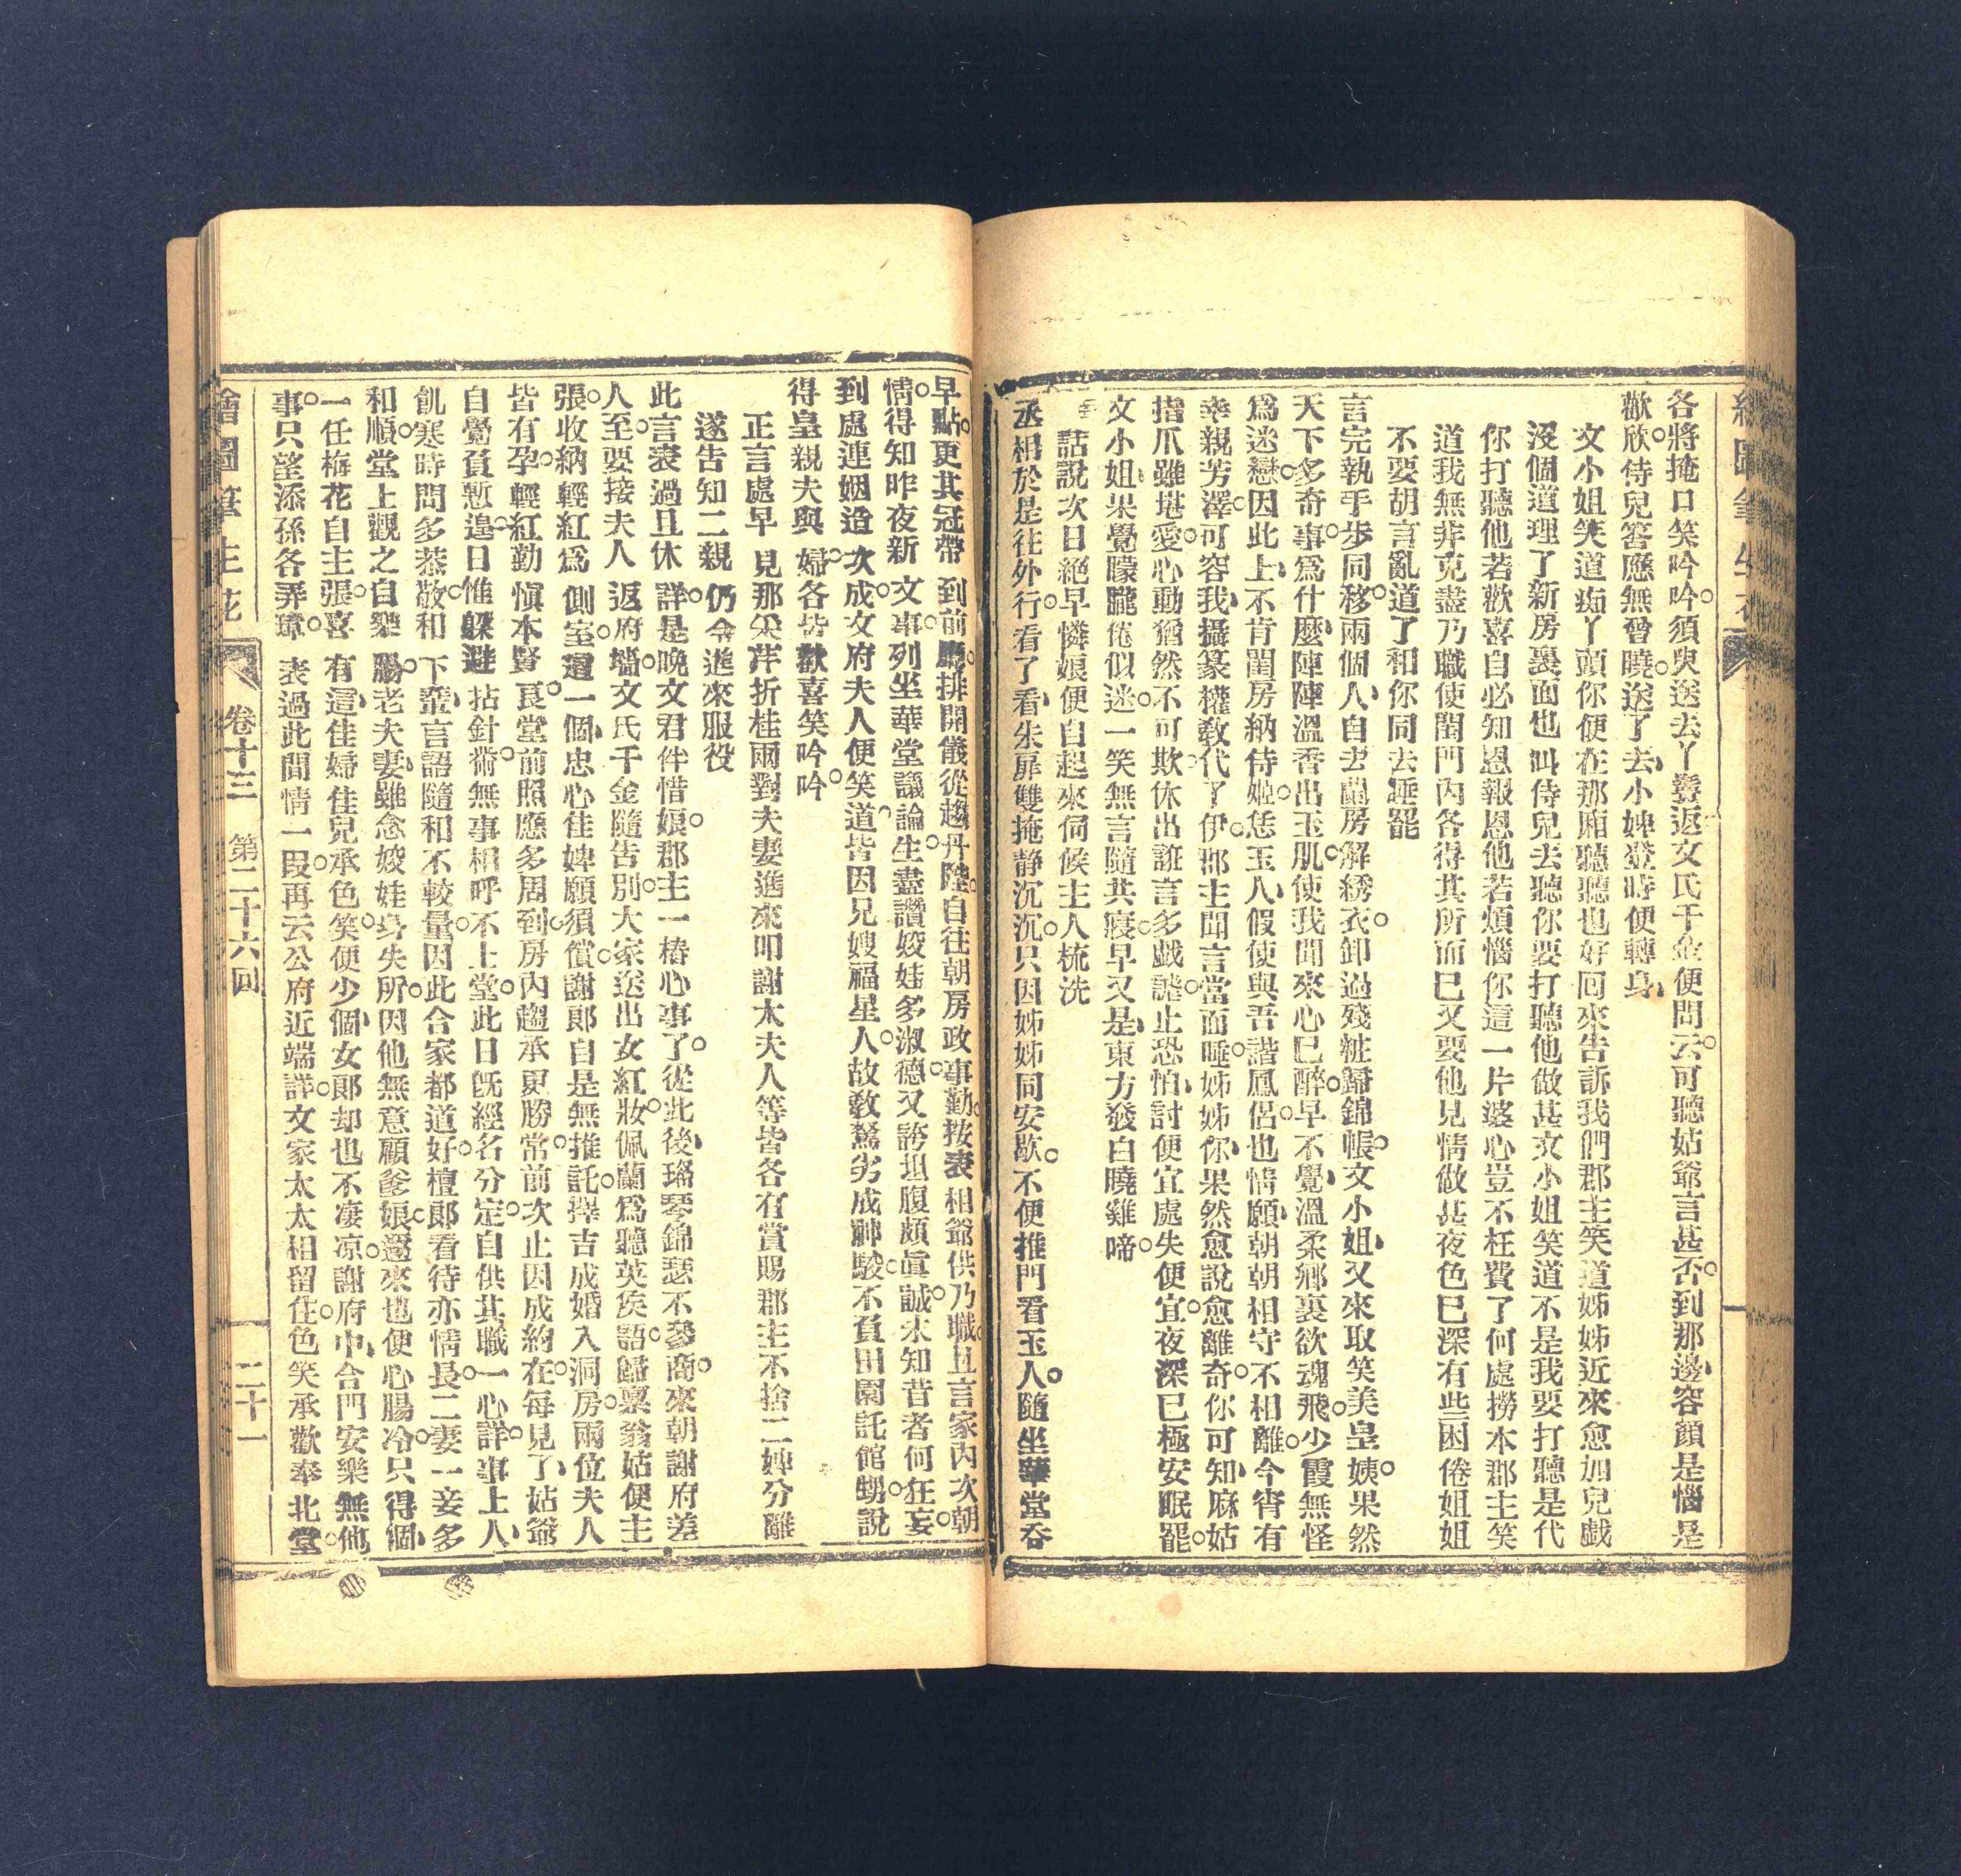 各將掩口笑吟吟須臾送去丫鬟返文氏千金便問云可聽姑爺言甚否到那邊容顏是惱是
歡欣侍兒答應無曾曉送了去小婢登時便轉身
文小姐笑道痴丫頭你便在那廂聽聽也好回來告訴我們郡主笑道姊姊近來愈加兒戲
沒個道理了新房裏面也叫侍兒去聽你要打聽他做甚文小姐笑道不是我要打聽是代
你打聽他若歡喜自必知恩報恩他若煩惱你這一片婆心豈不枉費了何處撈本郡主笑
道我無非克盡乃職使閨門內各得其所而已又要他見情做甚夜色已深有些困倦姐姐
不要胡言亂道了和你同去睡罷
言完執手步同移兩個人自去蘭房解綉衣卸過殘粧歸錦帳文小姐又來取笑美皇姨果然
天下多奇事爲什麼陣陣溫香出玉肌使我聞來心已醉早不覺溫柔鄉裏欲魂飛少霞無怪
爲迷戀因此上不肯閨房納侍姬恁玉人假使與吾諧鳳侶也情願朝朝相守不相離今宵有
幸親芳澤可容我攝篆權教代了伊郡主聞言當面唾姊姊你果然愈說愈離奇你可知麻姑
搯爪雖堪愛心動猶然不可欺休出誑言多戲謔止恐怕討便宜處失便宜夜深已極安眠罷
文小姐果覺矇矓倦似迷一笑無言隨共寢早又是東方發白曉雞啼
話說次日絕早憐娘便自起來伺候主人梳洗
丞相於是往外行看了看朱扉雙掩静沉沉只因姊姊同安歇不便推門看玉人隨坐華堂吞
早點更其冠帶到前廳排開儀從趨丹陛自往朝房政事勤按表相爺供乃職且言家內次朝
情得知昨夜新文事列坐華堂議論生盡讚姣娃多淑德又誇坦腹頗眞誠未知昔者何狂妄
到處連姻造次成文府夫人便笑道皆因兄嫂福星人故教駑劣成神駿不負田園託館甥說
得皇親夫與婦各皆歡喜笑吟吟
正言處早見那采芹折桂兩對夫妻進來叩謝太夫人等皆各有賞賜郡主不捨二婢分離
遂告知二親仍令進來服役
此言表過且休詳是晚文君伴惜娘郡主一樁心事了從此後珞琴錦瑟不參商來朝謝府差
人至要接夫人返府墻文氏千金隨告別大家送出女紅妝佩蘭爲聽英矦語歸禀翁姑便主
張收納輕紅爲側室還一個忠心佳婢願須償謝郎自是無推託擇吉成婚入洞房兩位夫人
皆有孕輕紅勤愼本賢良堂前照應多周到房內趨承更勝常前次止因成約在每見了姑爺
自覺負慙遑日惟躲避拈針黹無事相呼不上堂此日旣經名分定自供其職一心詳事上人
飢寒時問多恭敬和下輩言語隨和不較量因此合家都道好檀郎看待亦情長二妻一妾多
和順堂上觀之自樂膓老夫妻雖念姣娃身失所因他無意顧爹娘遝來也便心腸冷只得個
一任梅花自主張喜有這佳婦佳兒承色笑便少個女郎却也不凄凉謝府中合門安樂無他
事只望添孫各弄璋表過此間情一段再云公府近端詳文家太太相留住色笑承歡奉北堂
繪圖筆生花 卷十三 第二十六回 二十一